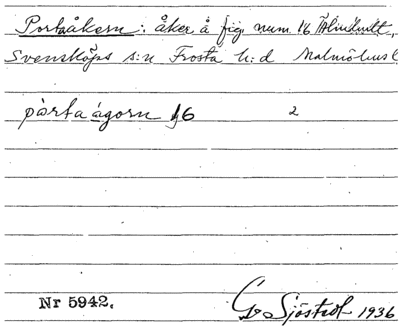 Portaåkern: åker å fig. num. 16
Svensköps s:n Frosta h:d Malmöhus l
pårtaågorn 16 2
Nr 5942.
Sjöstrof 1936